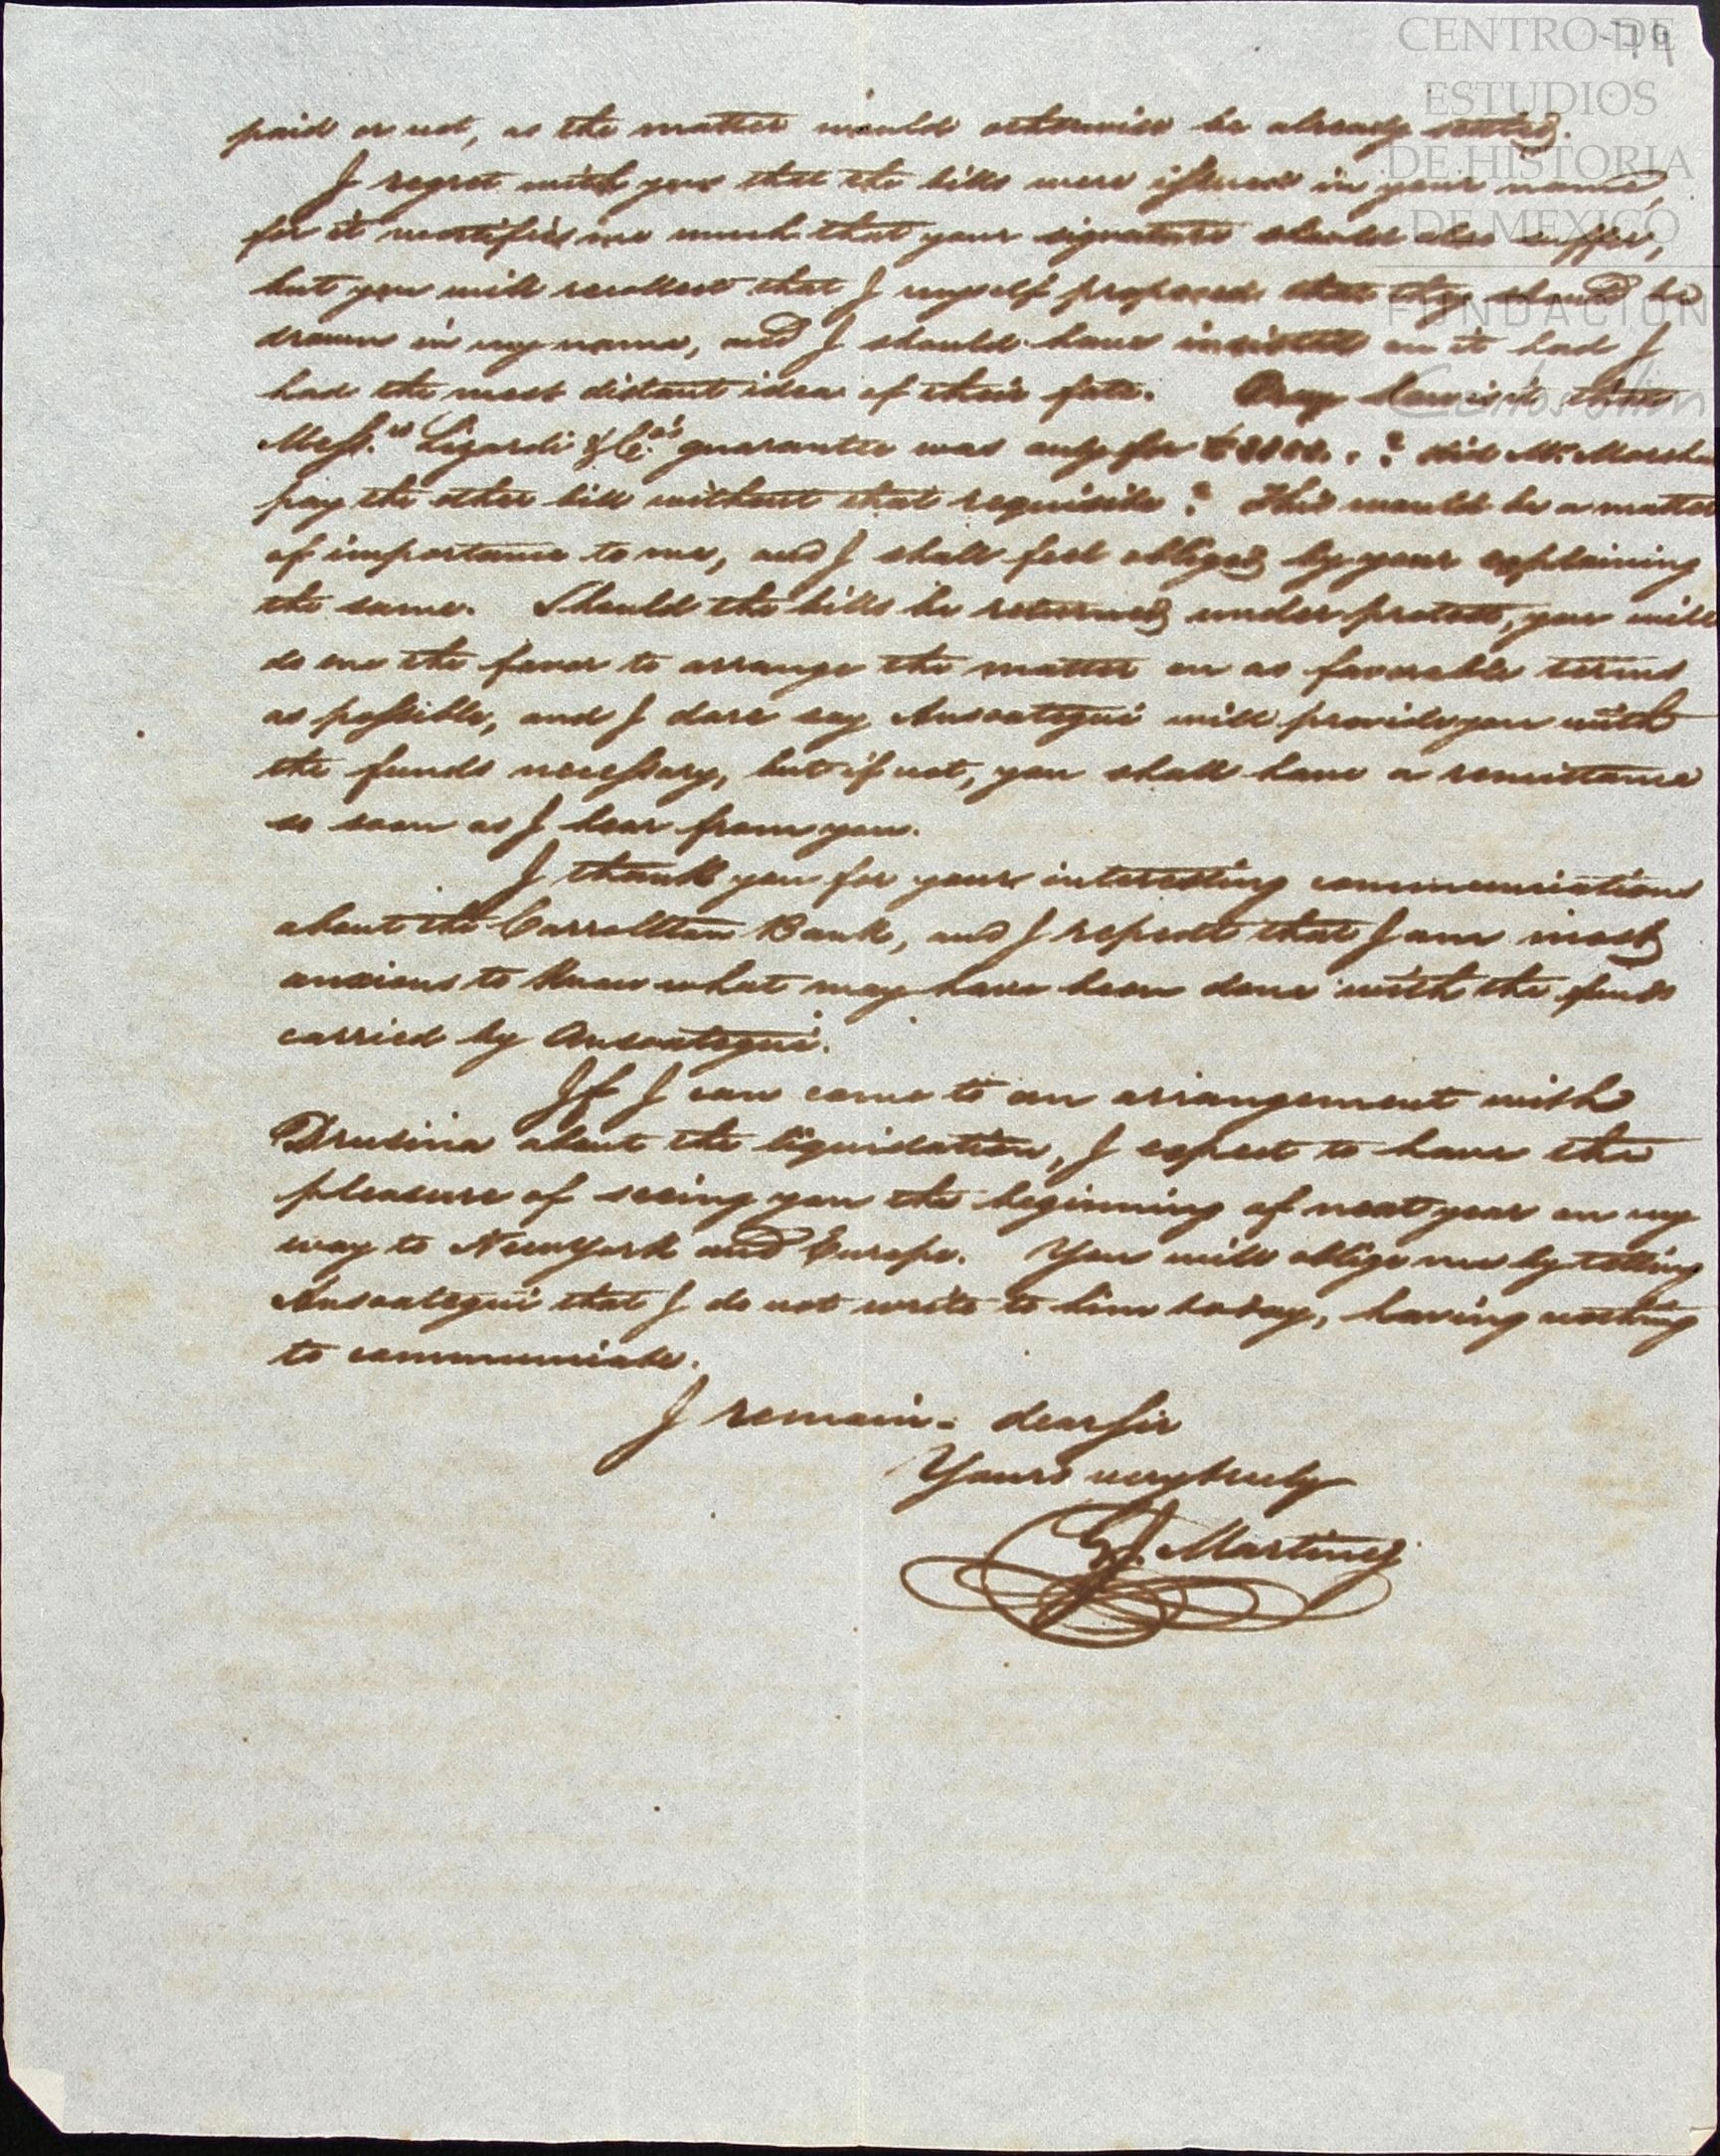 79
CENTRO DE
ESTUDIOS
DE HISTORIA
DE MEXICO
FUNDACION
Carlos Slim
paid or not, as the matter would otherwise be already settled.
I regret with you that the bills were issued in your name,
for it mortifies me much that your signature should also suffer,
but you will recollect that I myself proposed that they should be
drawn in my name, and I should have insisted on it had I
had the most distant idea of their fate. Pray how is it that
Mess.rs Lizardi & Co.'s guarantee was only for 8000. ? did Mr.
pay the other bill without that requisite? This would be a matter
of importance to me, and I shall feel obliged by your explaining
the same. Should the bills be returned under protest, you will
do me the favor to arrange the matter on as favorable terms
as possible, and I dare say Ansoategui will provide you with
the funds necessary, but if not, you shall have a remittance
so soon as I hear from you.
I thank you for your interesting communications
about the Carrollton Bank, and I repeat that I am most
anxious to know what may have been done with the funds
carried by Ansoategui.
If I can come to an arrangement with
Drusina about the liquidation, I expect to have the
pleasure of seeing you the beginning of next year on my
way to New York and Europe. You will oblige me by telling
Ansoategui that I do not write to him today, having nothing
to communicate.
I remain - dear Sir
Yours very truly
Martinez